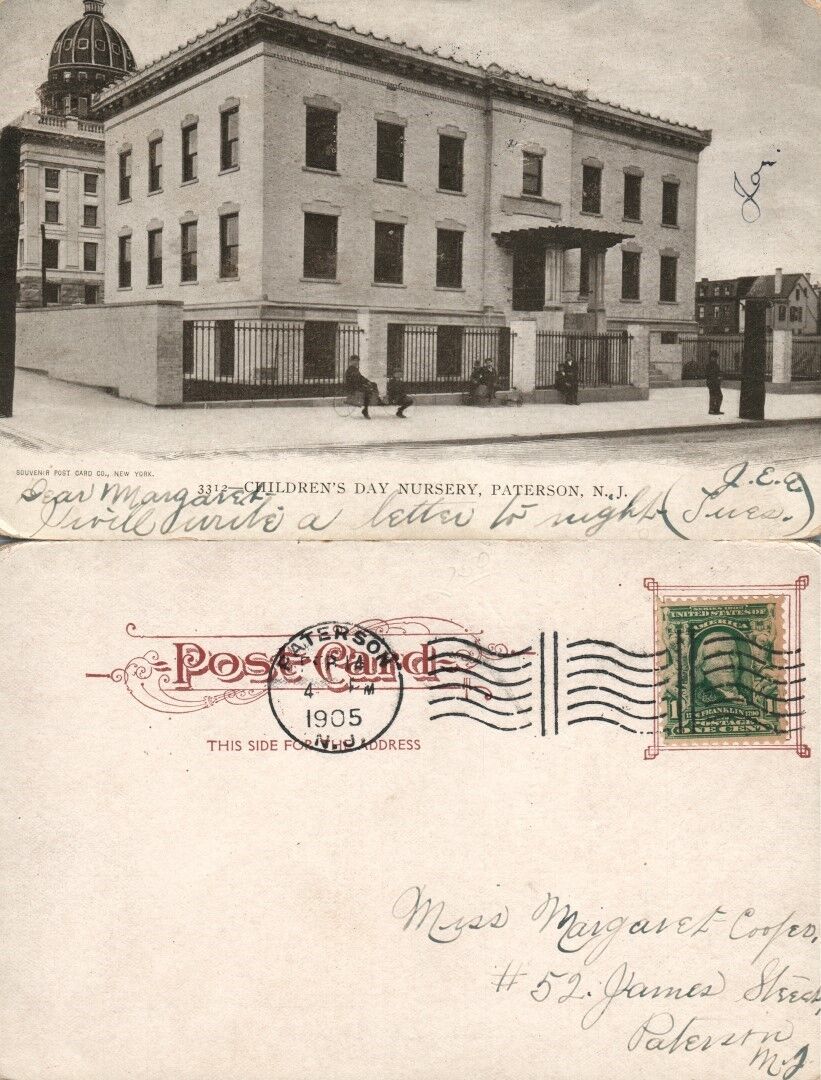 SOUVENIR POST CARD CO., NEW YORK.
3312—CHILDREN'S DAY NURSERY, PATERSON, N. J.
Dear Margaret J.E.C.
I will write a letter to night (Tues.)
POST CARD
PATERSON
4 PM
1905
N.J.
THIS SIDE FOR THE ADDRESS
SERIES 1902
UNITED STATES OF
AMERICA
FRANKLIN
POSTAGE
ONE CENT
Miss Margaret Cooper,
#52. James Street,
Paterson
N.J